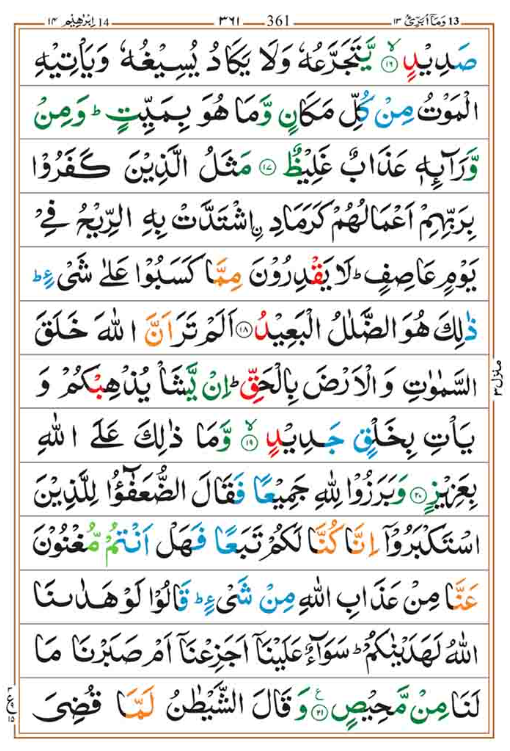 13 وَمَآ اُبَرِّئُ ١٣ — ٣٦١ — 361 — 14 اِبْرٰهِيْم ١٤
صَدِيْدٍ ۙ‏﴿۱۶﴾ يَّتَجَرَّعُهٗ وَلَا يَكَادُ يُسِيْغُهٗ وَيَاْتِيْهِ
الْمَوْتُ مِنْ كُلِّ مَكَانٍ وَّمَا هُوَ بِمَيِّتٍ ؕ وَمِنْ
وَّرَآئِهٖ عَذَابٌ غَلِيْظٌ ﴿۱۷﴾ مَثَلُ الَّذِيْنَ كَفَرُوْا
بِرَبِّهِمْ اَعْمَالُهُمْ كَرَمَادِ ۨاشْتَدَّتْ بِهِ الرِّيْحُ فِيْ
يَوْمٍ عَاصِفٍ ؕ لَا يَقْدِرُوْنَ مِمَّا كَسَبُوْا عَلٰى شَيْءٍ ؕ
ذٰلِكَ هُوَ الضَّلٰلُ الْبَعِيْدُ ﴿۱۸﴾ اَلَمْ تَرَ اَنَّ اللّٰهَ خَلَقَ
السَّمٰوٰتِ وَالْاَرْضَ بِالْحَقِّ ؕ اِنْ يَّشَاْ يُذْهِبْكُمْ وَ
يَاْتِ بِخَلْقٍ جَدِيْدٍ ۙ﴿۱۹﴾ وَّمَا ذٰلِكَ عَلَى اللّٰهِ
بِعَزِيْزٍ ﴿۲۰﴾ وَبَرَزُوْا لِلّٰهِ جَمِيْعًا فَقَالَ الضُّعَفٰٓؤُا لِلَّذِيْنَ
اسْتَكْبَرُوْٓا اِنَّا كُنَّا لَكُمْ تَبَعًا فَهَلْ اَنْتُمْ مُّغْنُوْنَ
عَنَّا مِنْ عَذَابِ اللّٰهِ مِنْ شَيْءٍ ؕ قَالُوْا لَوْ هَدٰىنَا
اللّٰهُ لَهَدَيْنٰكُمْ ؕ سَوَآءٌ عَلَيْنَآ اَجَزِعْنَآ اَمْ صَبَرْنَا مَا
لَنَا مِنْ مَّحِيْصٍ ﴿۲۱﴾ ع وَقَالَ الشَّيْطٰنُ لَمَّا قُضِيَ
منزل ٣